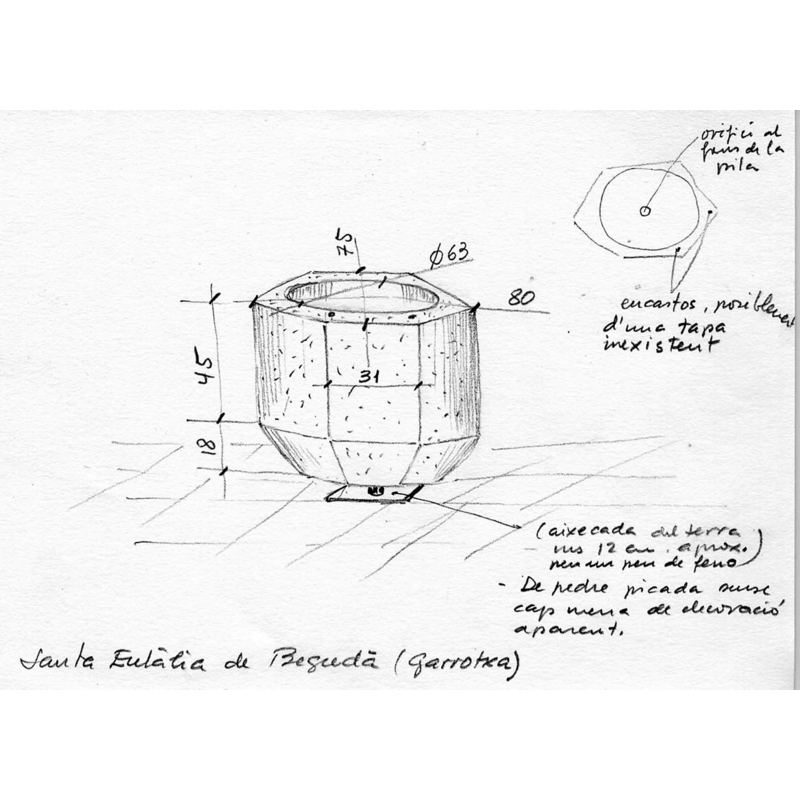 orifici al
fons de la
pila
75
ϕ63
80
encastos, posiblement
d'una tapa
inexistent
45
31
18
(aixecada del terra
uns 12 cm. aprox.
per un peu de ferro)
- De pedra picada sense
cap mena de decoració
aparent.
Santa Eulàlia de Begudà (Garrotxa)